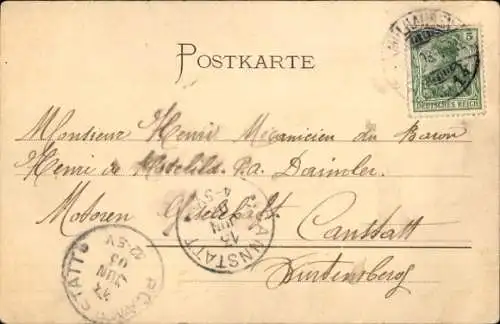 POSTKARTE
5
DEUTSCHES REICH
Monsieur Henri Mécanicien du Baron
Henri de p.A. Daimler
Motoren Gesellschaft Canstatt
Würtemberg
ANNSTATT
13
JUN
4-5
JUN
03